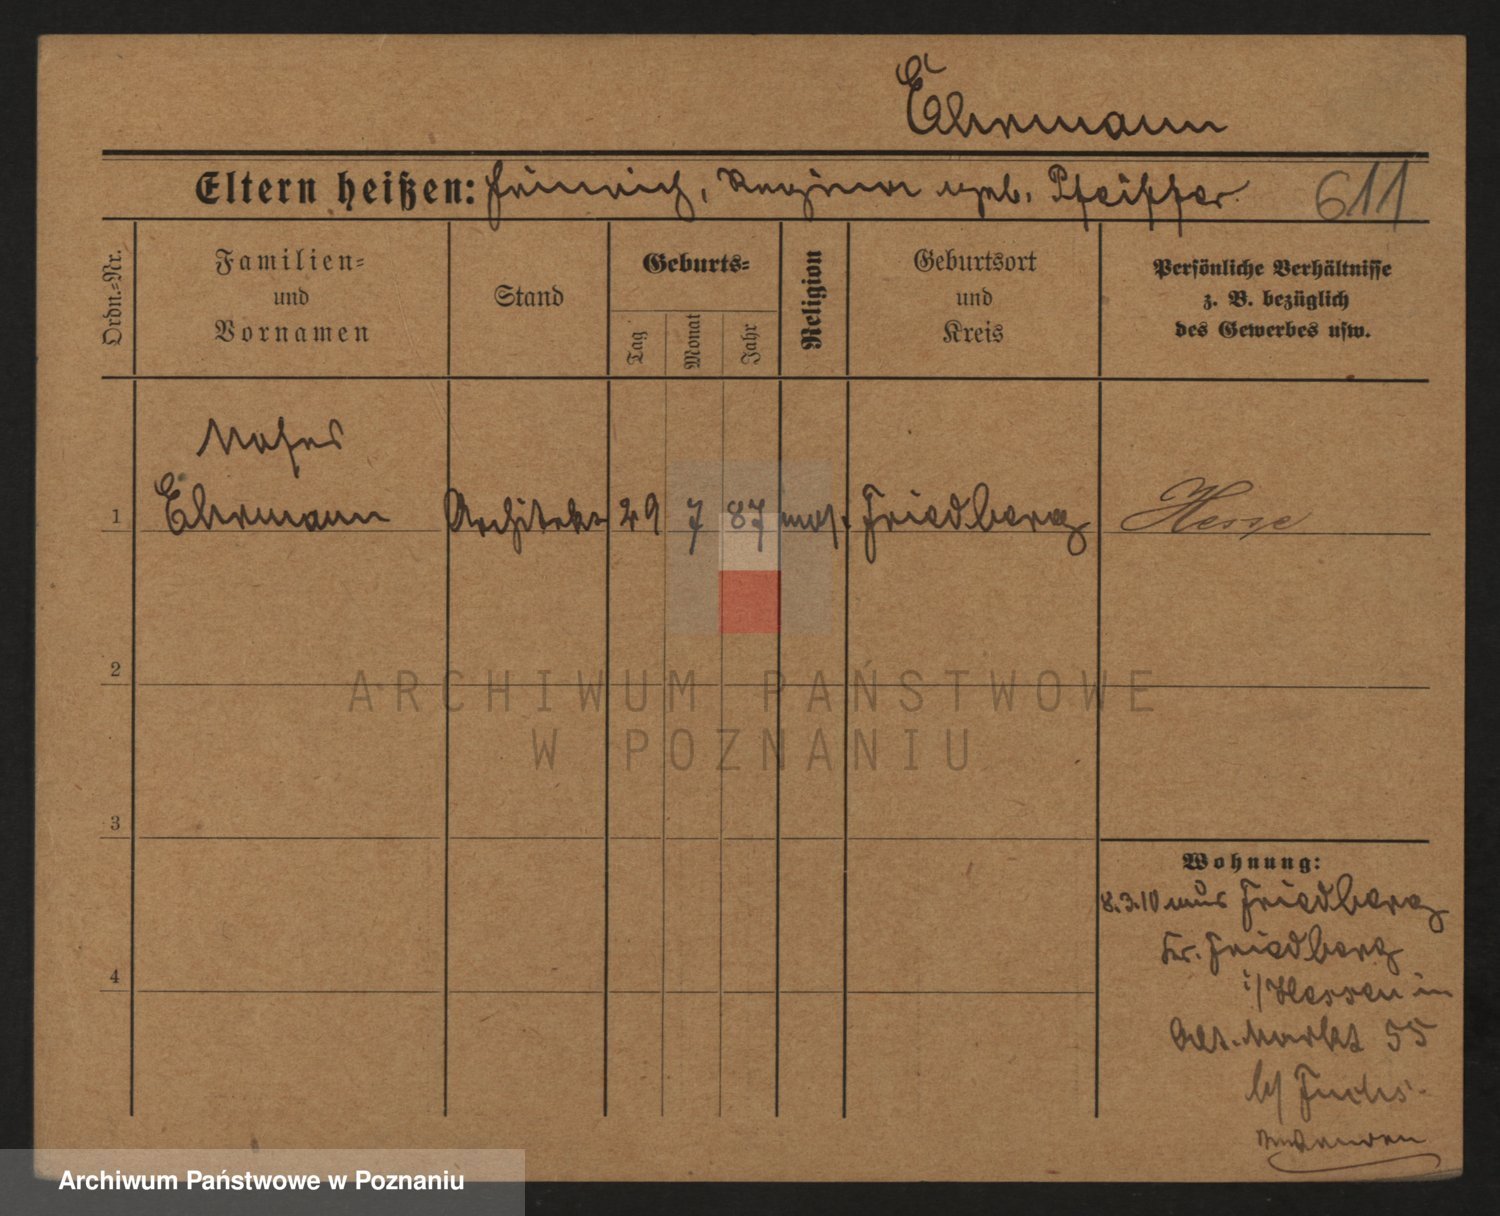 Ehrmann
Eltern heißen: Heinrich, Regina geb. Pfeiffer
611
Ordn.-Nr.
Familien-
und
Vornamen
Stand
Geburts-
Tag
Monat
Jahr
Religion
Geburtsort
und
Kreis
Persönliche Verhältnisse
z. B. bezüglich
des Gewerbes usw.
Moses
1 Ehrmann Architekt 29 7 87 mos. Friedberg Hesse
2
ARCHIWUM PAŃSTWOWE
W POZNANIU
3
Wohnung:
8.3.10 aus Friedberg
Kr. Friedberg
4
i/Hessen in
Alt. Markt 55
b/ Fuchs.
Archiwum Państwowe w Poznaniu